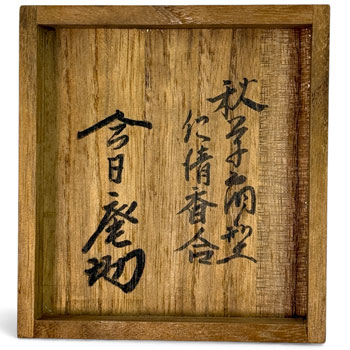 秋草扇型
仁清香合
今日庵